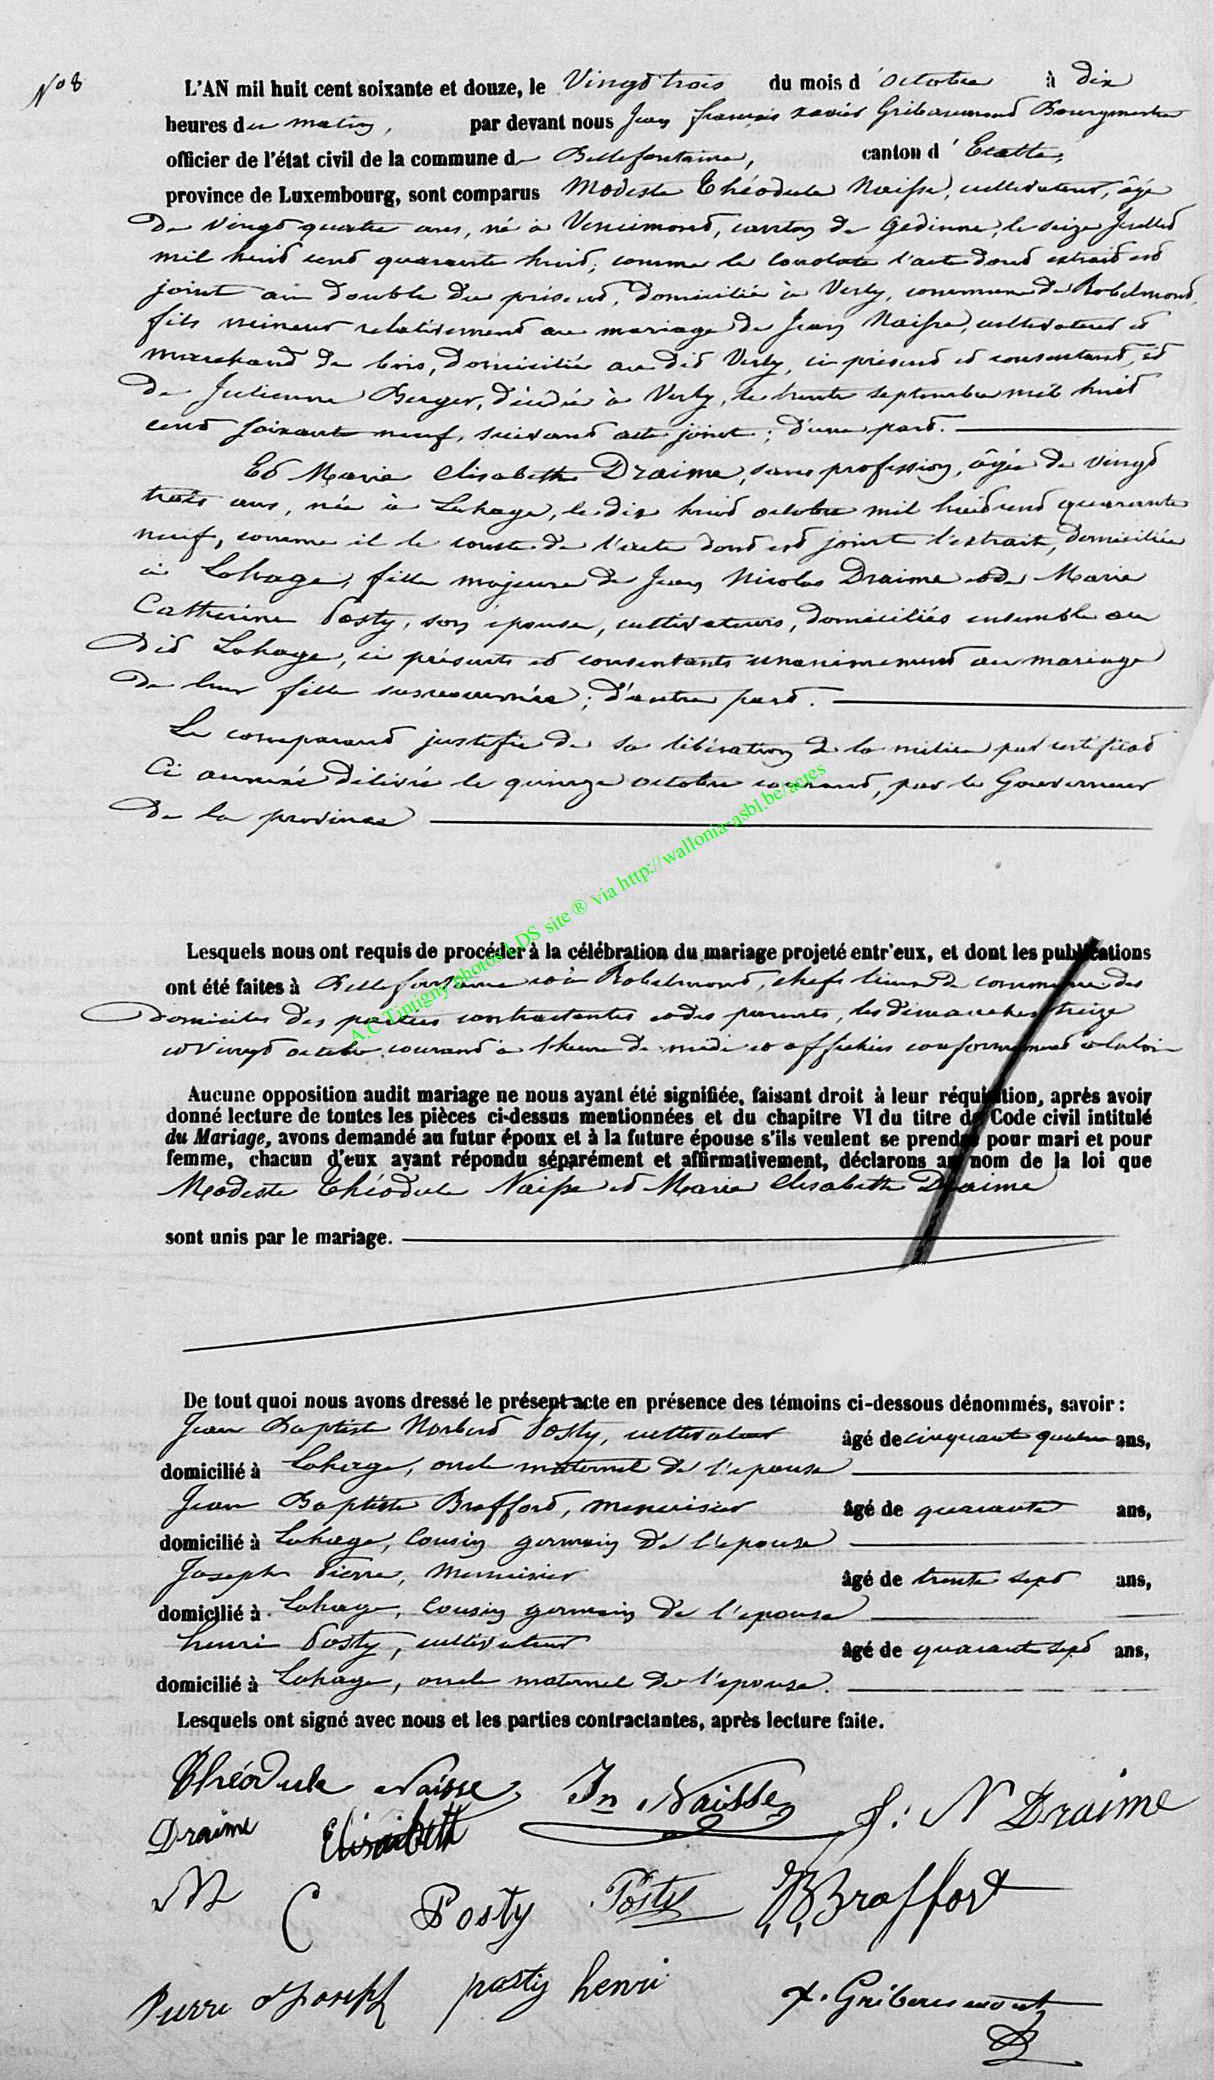 N° 8
L'AN mil huit cent soixante et douze, le Vingt trois du mois d'octobre à dix
heures du matin, par devant nous Jean françois xavier Gribaumont Bourgmestre
officier de l'état civil de la commune de Bellefontaine, canton d'Etalle,
province de Luxembourg, sont comparus Modeste Théodule Naisse, cultivateur, âgé
de vingt quatre ans, né à Vencimont, canton de Gedinne, le seize Juillet
mil huit cent quarante huit, comme le constate l'acte dont extrait est
joint au double du présent, domicilié à Verly, commune de Robelmont,
fils mineur relativement au mariage de Jean Naisse, cultivateur et
marchand de bois, domicilié au dit Verly, ci présent et consentant, et
de Julienne Berger, décédée à Verly, le trente septembre mil huit
cent soixante neuf, suivant acte joint ; d'une part.
Et Marie Elisabeth Draime, sans profession, âgée de vingt
trois ans, née à Lahage, le dix huit octobre mil huit cent quarante
neuf, comme il le conste de l'acte dont est joint l'extrait, domiciliée
à Lahage, fille majeure de Jean Nicolas Draime et de Marie
Catherine Posty, son épouse, cultivateurs, domiciliés ensemble au
dit Lahage, ci présents et consentants unanimement au mariage
de leur fille susnommée ; d'autre part.
Le comparant justifie de sa libération de la milice par certificat
ci annexé délivré le quinze octobre courant, par le Gouverneur
de la province
A.C Tintigny photos LDS site ® via http://wallonia-asbl.be/actes
Lesquels nous ont requis de procéder à la célébration du mariage projeté entr'eux, et dont les publications
ont été faites à Bellefontaine et à Robelmont, chefs lieux de commune des
domiciles des parties contractantes et des parents, les dimanches treize
et vingt octobre courant à l'heure de midi et affichées conformément à la loi
Aucune opposition audit mariage ne nous ayant été signifiée, faisant droit à leur réquisition, après avoir
donné lecture de toutes les pièces ci-dessus mentionnées et du chapitre VI du titre du Code civil intitulé
du Mariage, avons demandé au futur époux et à la future épouse s'ils veulent se prendre pour mari et pour
femme, chacun d'eux ayant répondu séparément et affirmativement, déclarons au nom de la loi que
Modeste Théodule Naisse et Marie Elisabeth Draime
sont unis par le mariage.
De tout quoi nous avons dressé le présent acte en présence des témoins ci-dessous dénommés, savoir :
Jean Baptiste Norbert Posty, cultivateur âgé de cinquante quatre ans,
domicilié à Lahage, oncle maternel de l'épouse
Jean Baptiste Braffort, menuisier âgé de quarante ans,
domicilié à Lahage, cousin germain de l'épouse
Joseph Pierre, menuisier âgé de trente sept ans,
domicilié à Lahage, cousin germain de l'épouse
henri Posty, cultivateur âgé de quarante sept ans,
domicilié à Lahage, oncle maternel de l'épouse.
Lesquels ont signé avec nous et les parties contractantes, après lecture faite.
Théodule Naisse Jn Naisse J: N Draime
Draime Elisabeth
M C Posty Posty JB Braffort
Pierre Joseph posty henri x. Gribaumont